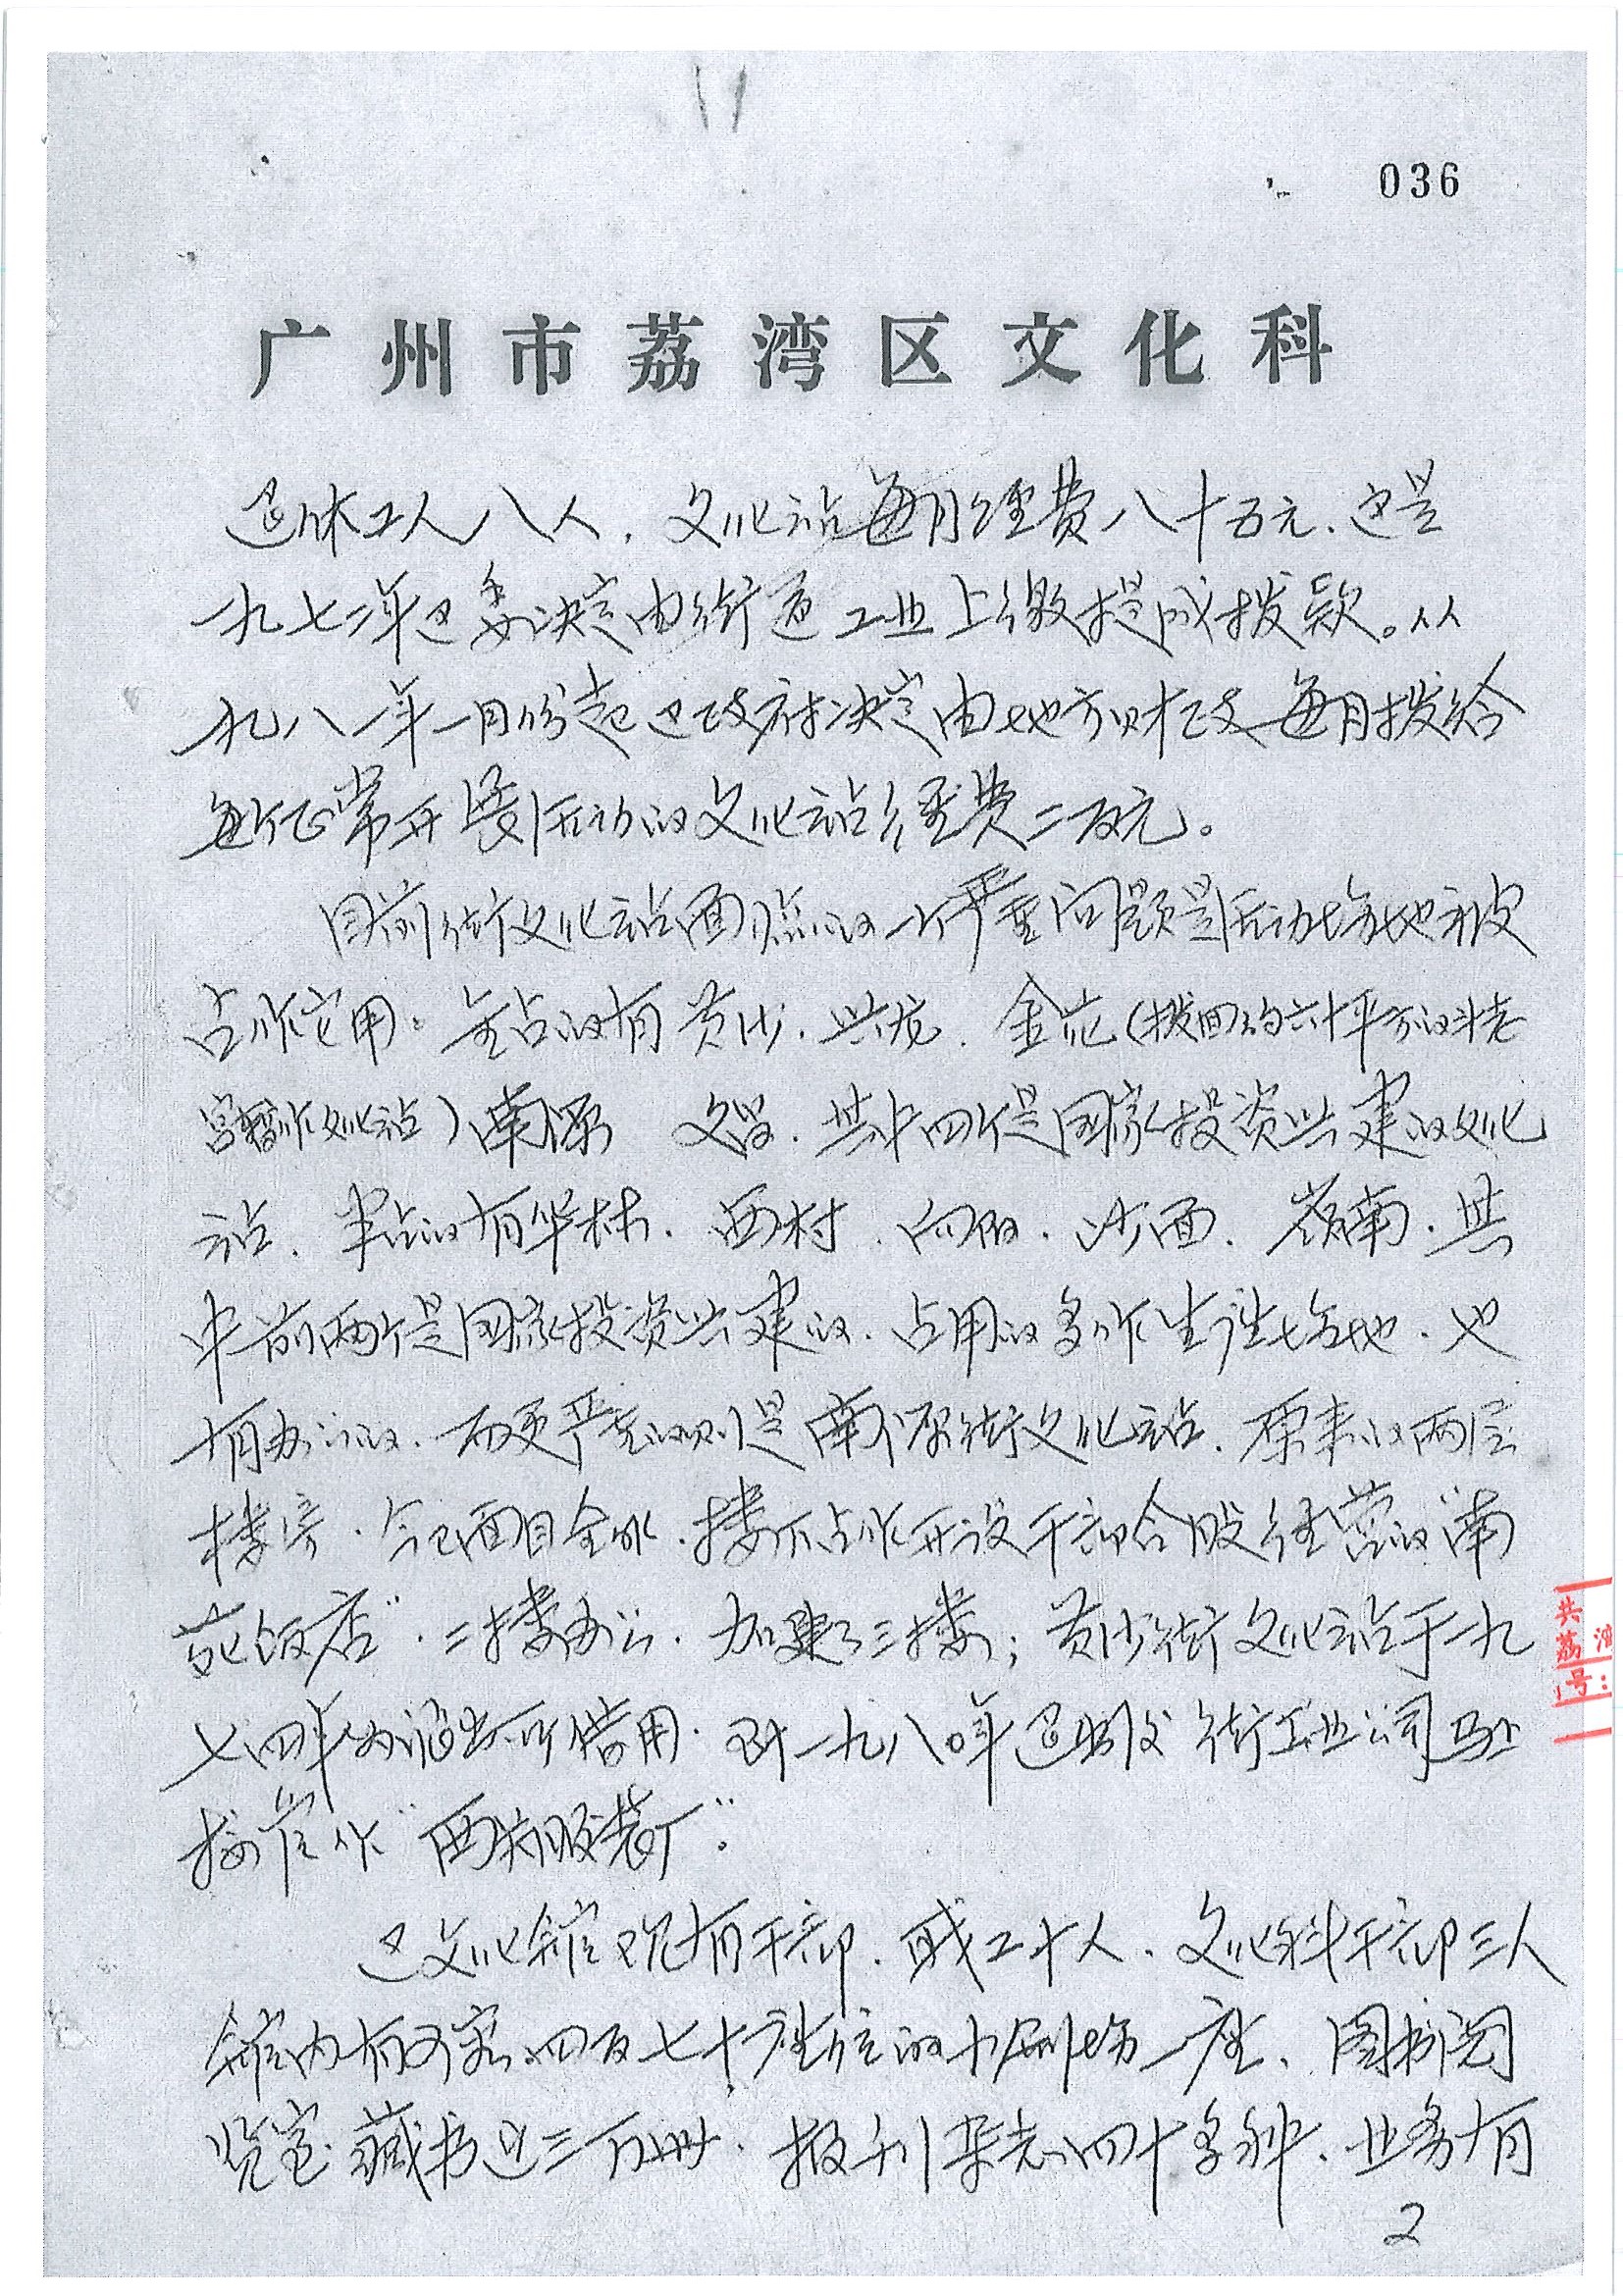 036
广州市荔湾区文化科
退休工人八人，文化站每月经费八十五元，这是
一九七二年区委决定由街道工业上缴提成拨款。从
一九八一年一月份起区政府决定由地方财政每月拨给
每个正常开展活动的文化站经费二百元。
目前街文化站面临的一个严重问题是活动场地被
占作它用。全占的有黄沙、兴龙、金花（拨回约六十平方的斗老
宫暂作文化站）南源、文昌，其中四个是国家投资兴建的文化
站，半占的有华林、西村、向阳、沙面、岭南，其
中前两个是国家投资兴建的，占用的多作生产场地，也
有办公的，而更严重的则是南源街文化站，原来的两层
楼房，今已面目全非，楼下占作开设干部合股经营的“南
苑饭店”，二楼办公，加建了三楼；黄沙街文化站于一九
七四年为派出所借用，到一九八〇年退出后街工业公司马上
接管作“西关服装厂”。
区文化馆现有干部、职工十人，文化科干部三人
馆内有可容四百七十座位的小剧场一座、图书阅
览室藏书近三万册，报刊杂志四十多种，业务有
2
共
荔 
号：